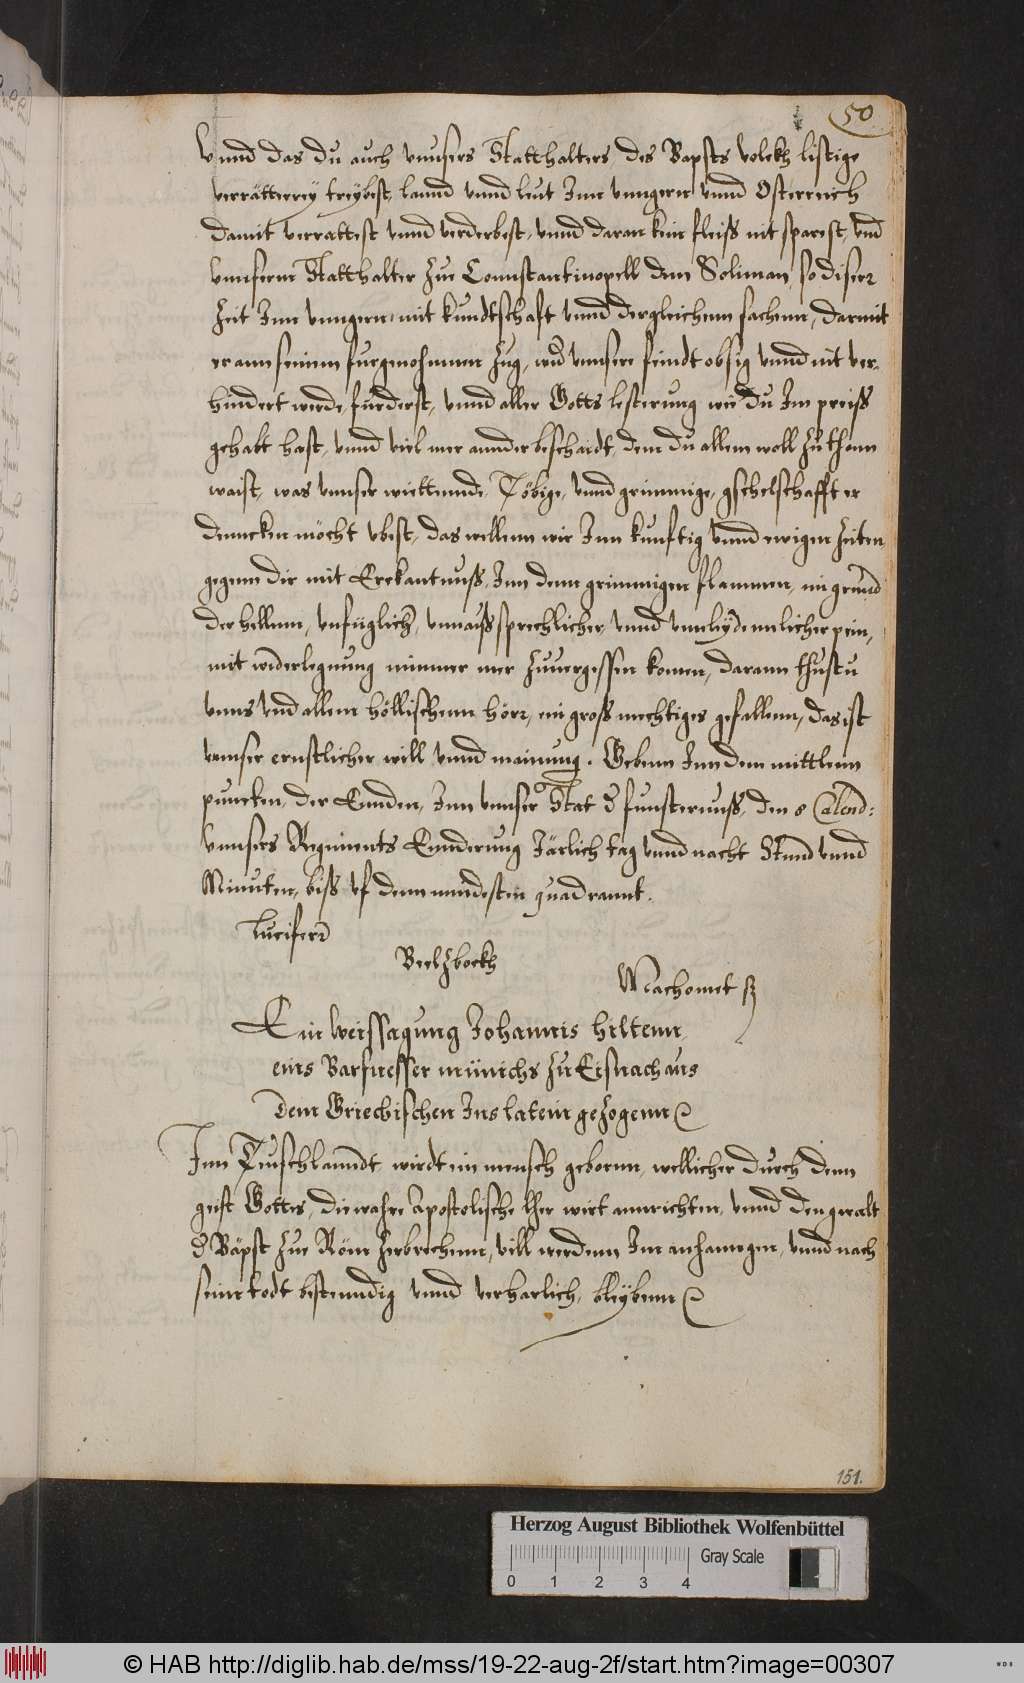 50
Vnnd das du auch vnnsers Statthalters des Bapsts volckh listige
verrätterey treybest, lannd vnnd leut Inn vnngern vnnd Osterreich
damit verrattest vnnd verderbest, vnnd daran kein fleiss nit sparest, vnd
vnnserm Statthalter Zue Connstantinopell dem Soliman, so diser
Zeit Inn vnngern, mit kundtschafft vnnd dergleichenn sachenn, darmit
er ann seinem furgenohmnen Zug, vnnsere feindt obsig vnnd nit ver-
hindert werde, furderst, vnnd aller Gotts lesterung wie du Im preiss
gehabt hast, vnnd viel mer annder bescheidt, dem du allem woll zu thonn
waist, was vnnser wiettennde, Töbige, vnnd grimmige, gselschafft er
denncken möcht vbest, das wellenn wir Inn kunftig vnnd ewigen Zeiten
gegenn dir mit Erekantnuss, Inn denn grimmigen flammen, im grund
der hellenn, vnfüglich, vnnaussprechlicher vnnd vnnleydennlicher pein,
mit widerlegnung nimmer mer Zuuergessen komen, darann thustu
vnns vnd allem höllischenn hörr, ein gross mechtiges gefallenn, das ist
vnnser ernstlicher will vnnd mainung. Gebenn Inn dem mittlenn
puncken, der Ennden, Inn vnnser Stat d funsternuss, den 8 Calend:
vnnsers Regiments Ennderung Järlich tag vnnd nacht Stund vnnd
Minuten, biss vf denn mindesten quadrannt.
Luciferr
Beelzbockh
Machomet
Ein Weissagung Johannis hiltenn
eins Barfuesser münichs zu Eisnach aus
dem Griechischen Ins latein gezogenn
Inn Teuschlanndt wirdt ein mensch geborenn, wellicher durch denn
geist Gottes, die wahre Apostolische lher wirt annrichten, vnnd den gwalt
d Bäpst Zue Rom Zerbrechenn, vill werdenn Im anhanngen, vnnd nach
seim todt bestenndig vnnd verharlich, bleybenn
151.
Herzog August Bibliothek Wolfenbüttel
Gray Scale
0 1 2 3 4
© HAB http://diglib.hab.de/mss/19-22-aug-2f/start.htm?image=00307